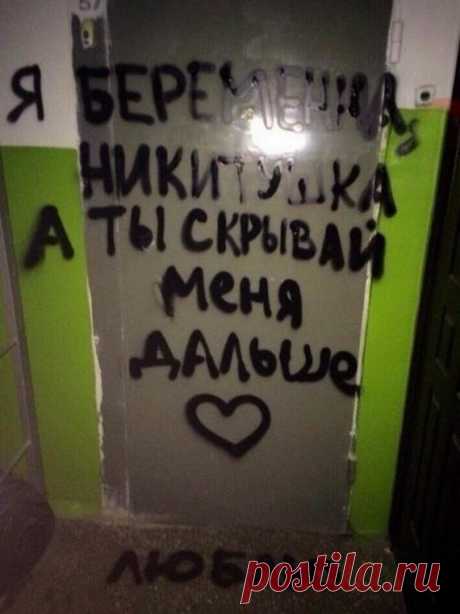 57
Я БЕРЕМЕННА
НИКИТУШКА
А ТЫ СКРЫВАЙ
МЕНЯ
ДАЛЬШЕ
postila.ru